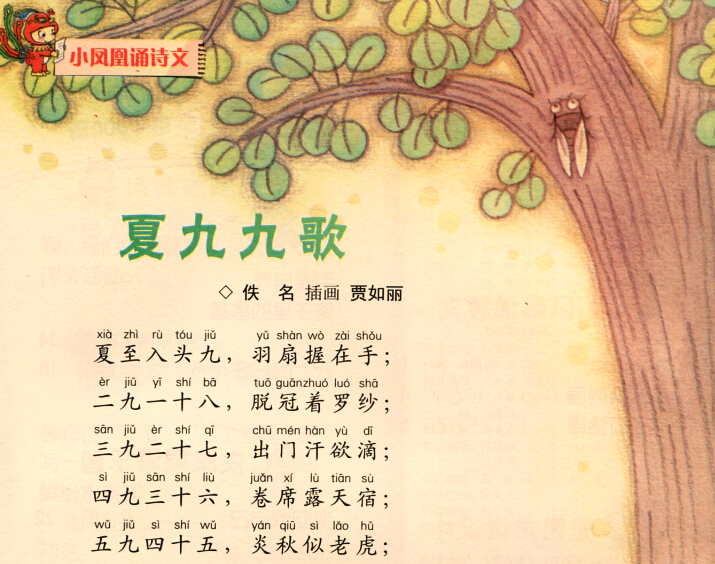 小凤凰诵诗文
夏九九歌
◇ 佚 名 插画 贾如丽
xià zhì rù tóu jiǔ yǔ shàn wò zài shǒu
夏至入头九，羽扇握在手；
èr jiǔ yī shí bā tuō guānzhuó luó shā
二九一十八，脱冠着罗纱；
sān jiǔ èr shí qī chū mén hàn yù dī
三九二十七，出门汗欲滴；
sì jiǔ sān shí liù juǎn xí lù tiān sù
四九三十六，卷席露天宿；
wǔ jiǔ sì shí wǔ yán qiū sì lǎo hǔ
五九四十五，炎秋似老虎；